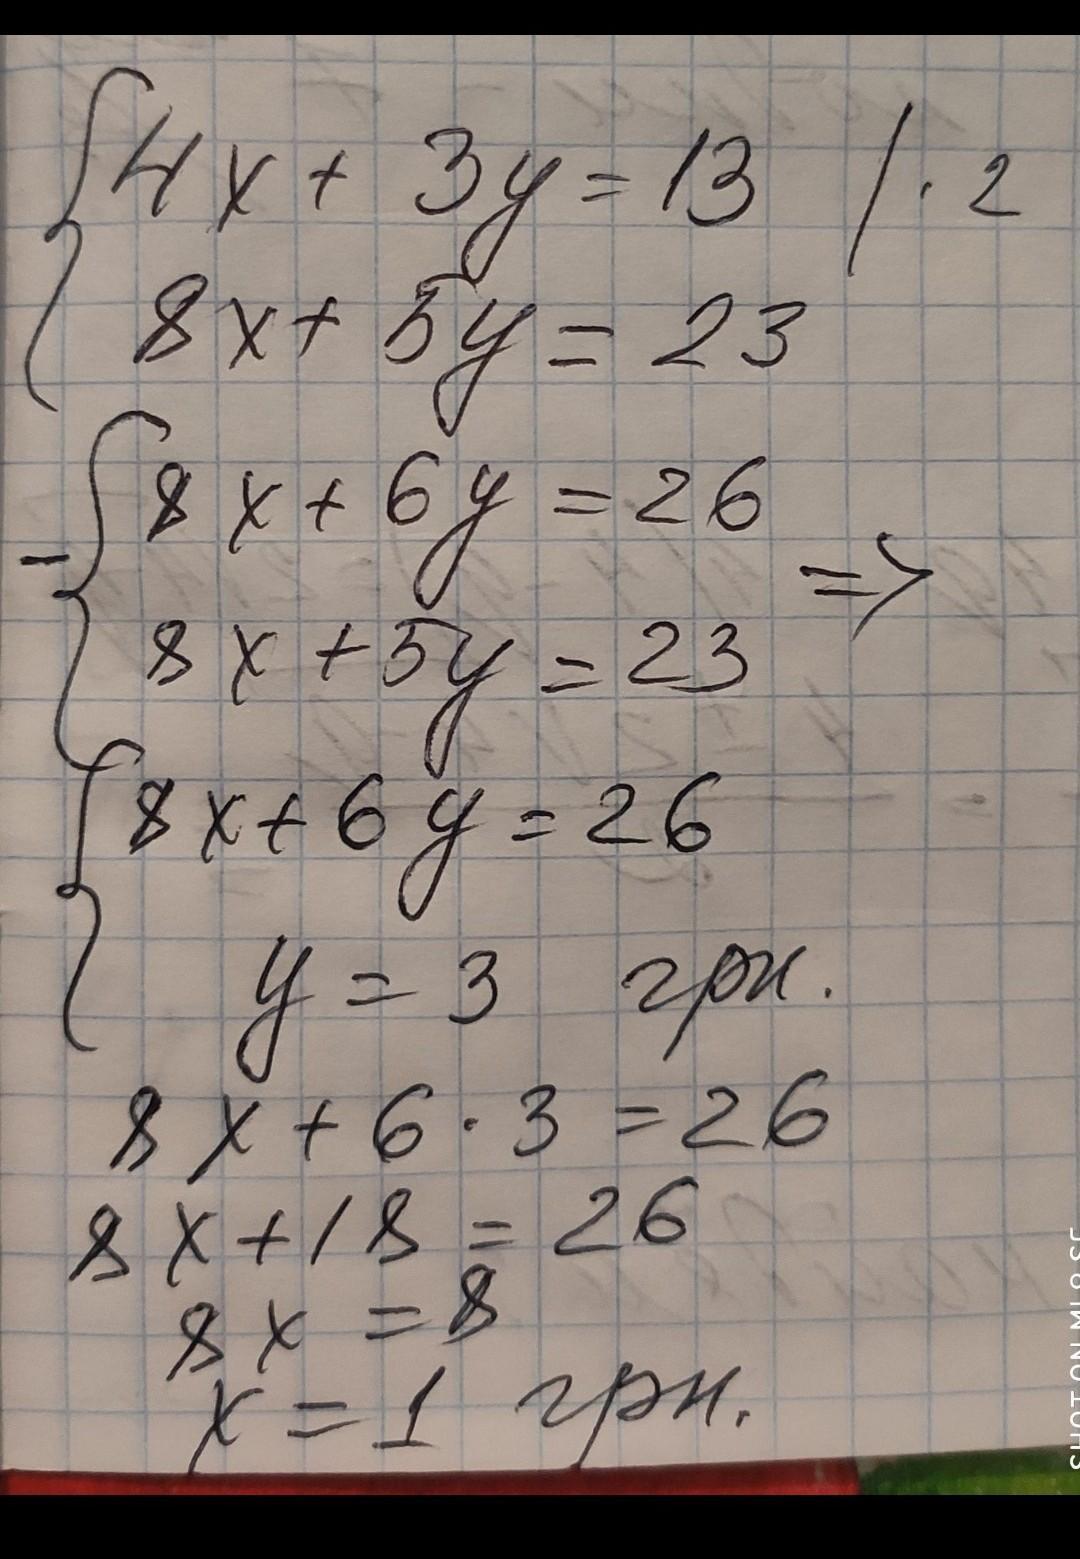 4x + 3y = 13 / · 2
8x + 5y = 23
8x + 6y = 26
- =>
8x + 5y = 23
8x + 6y = 26
y = 3 грн.
8x + 6 · 3 = 26
8x + 18 = 26
8x = 8
x = 1 грн.
SHOT ON MI 8 SE